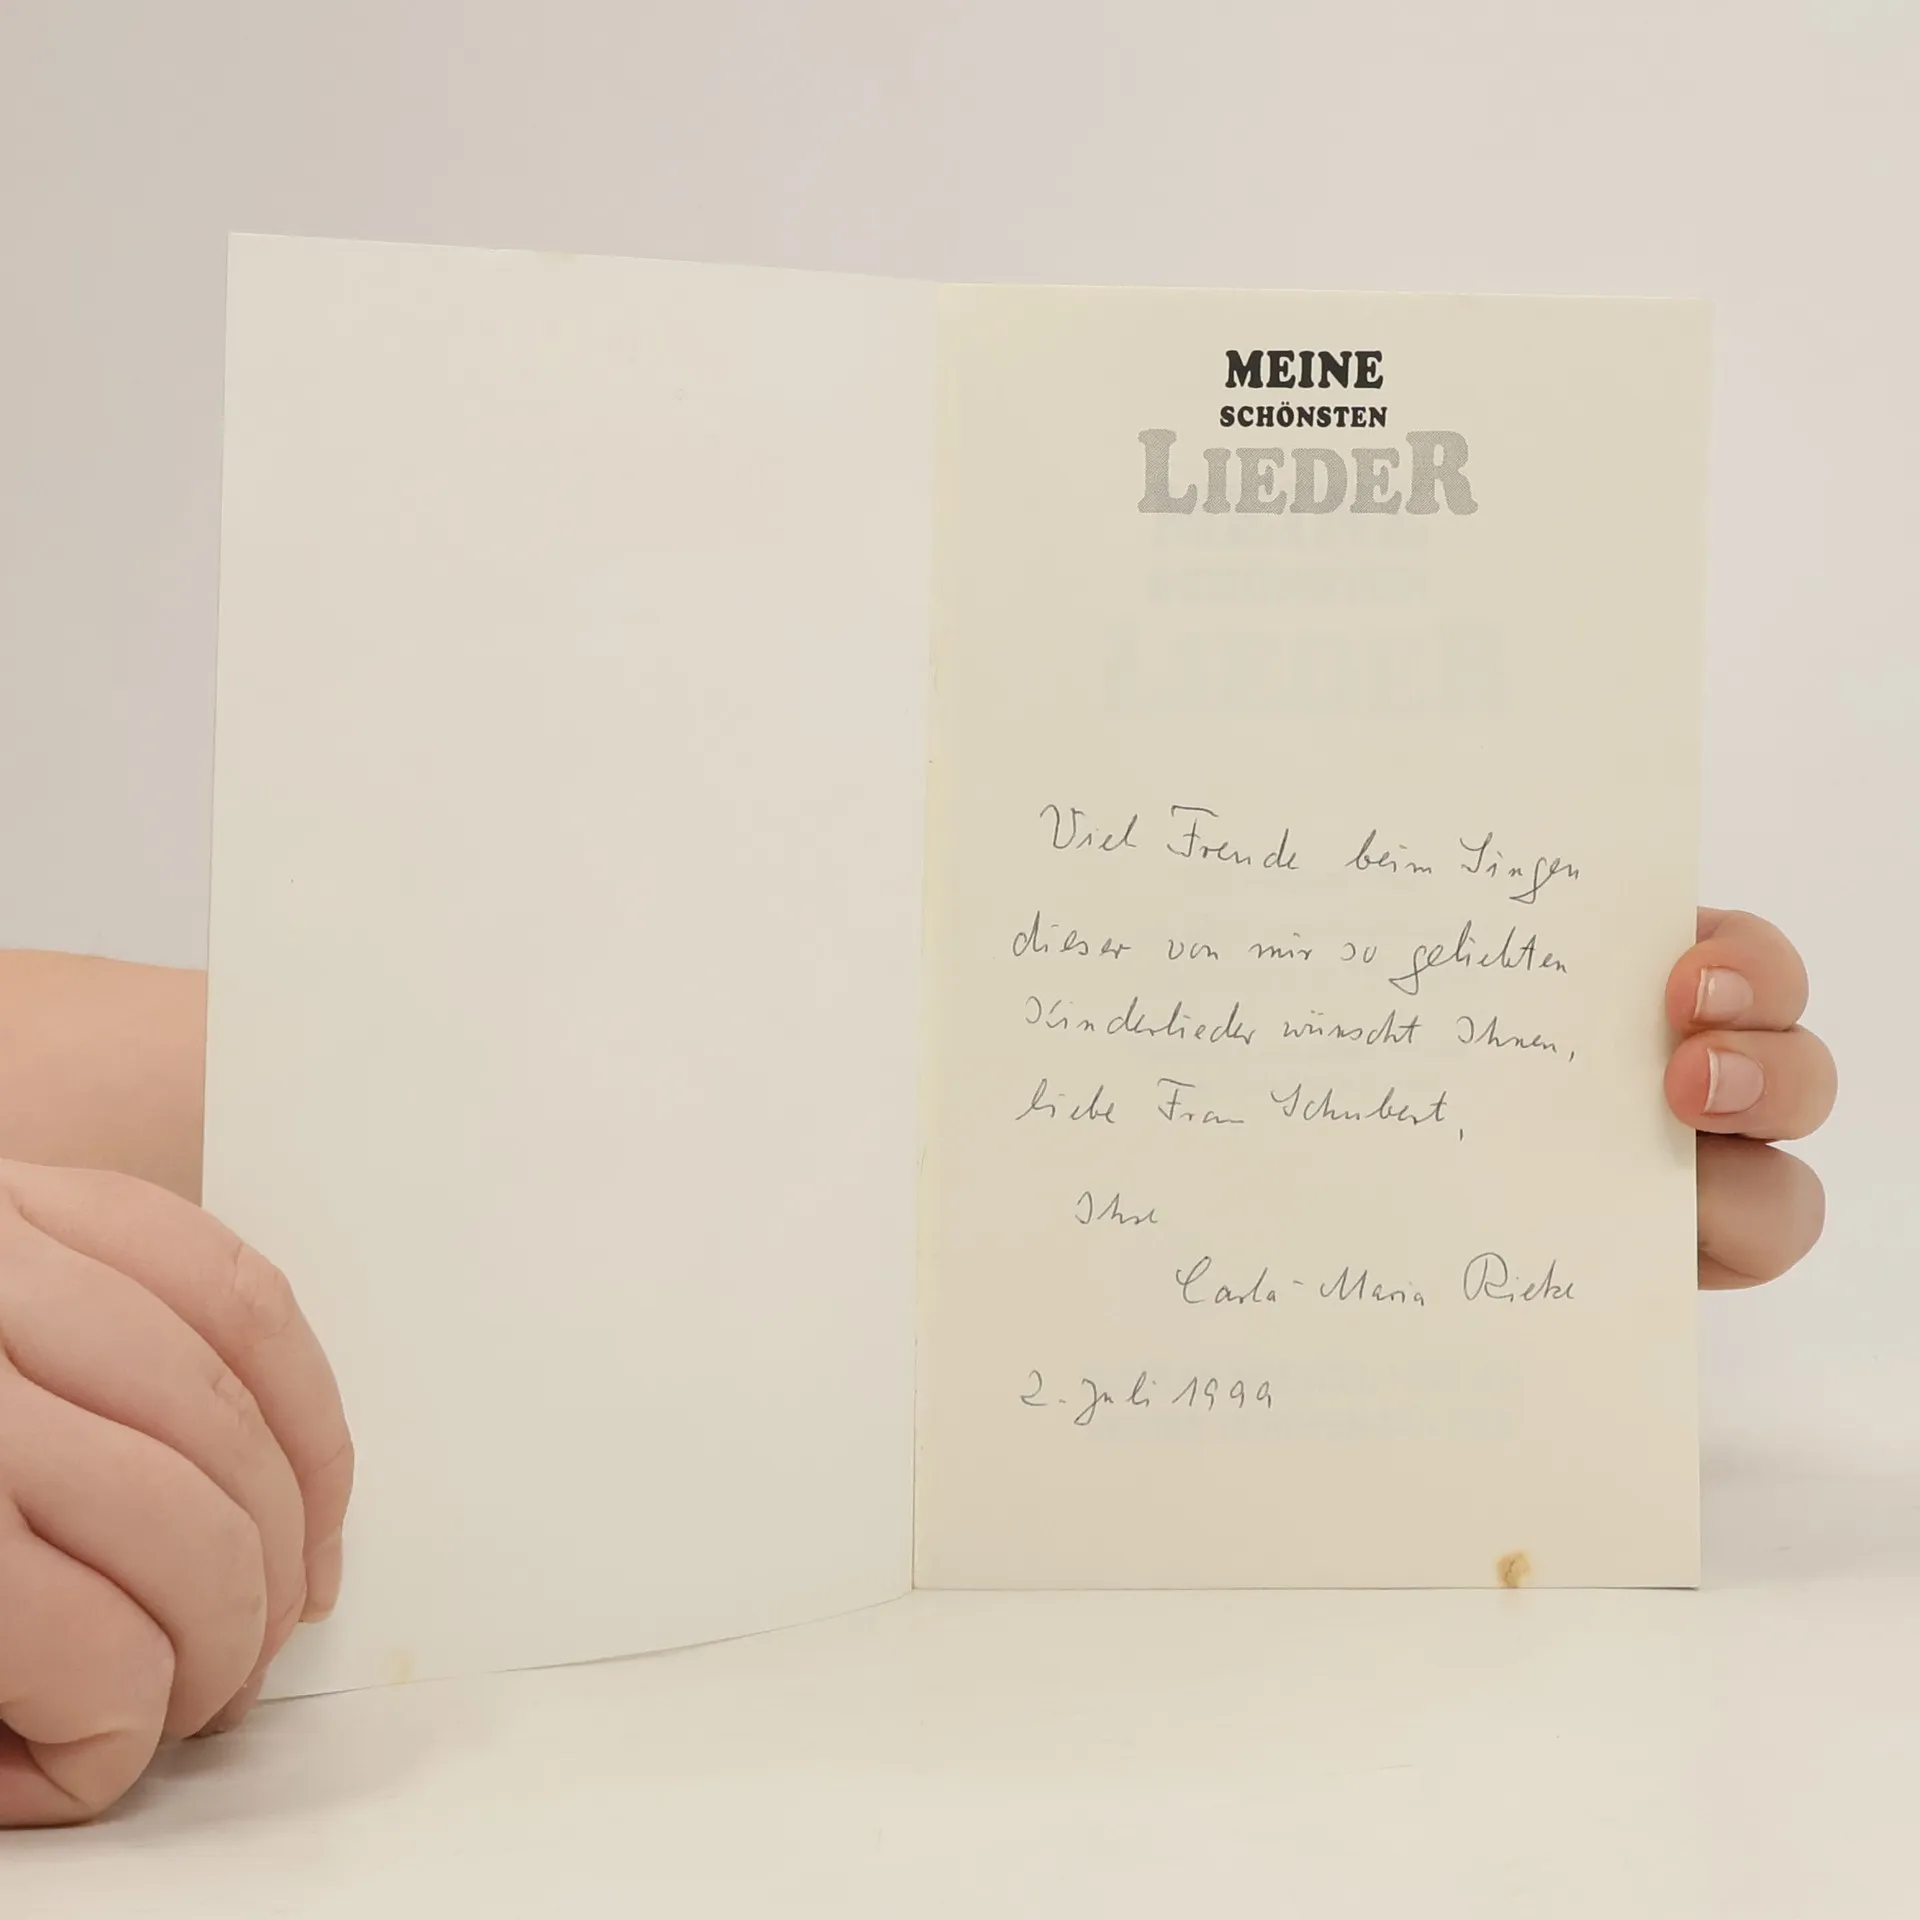 MEINE
SCHÖNSTEN
LIEDER
Viel Freude beim Singen
dieser von mir so geliebten
Kinderlieder wünscht Ihnen,
liebe Frau Schubert,
Ihre
Carla-Maria Rieke
2. Juli 1999